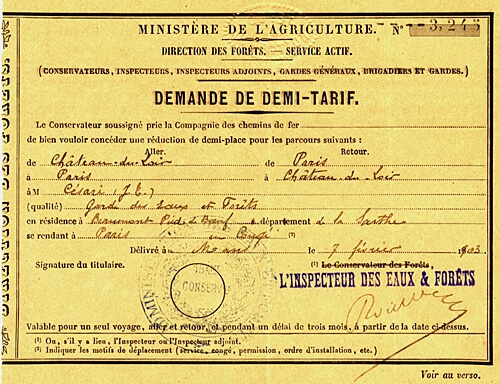 MINISTÈRE DE L'AGRICULTURE. N° 3,246
DIRECTION DES FORÊTS. — SERVICE ACTIF.
(CONSERVATEURS, INSPECTEURS, INSPECTEURS ADJOINTS, GARDES GÉNÉRAUX, BRIGADIERS ET GARDES.)
DEMANDE DE DEMI-TARIF.
Le Conservateur soussigné prie la Compagnie des chemins de fer
de bien vouloir concéder une réduction de demi-place pour les parcours suivants :
Aller. Retour.
de Château-du-Loir de Paris
à Paris à Château-du-Loir
à M Césari (J.E.)
(qualité) Garde des Eaux et Forêts
en résidence à Beaumont Pied-de-Bœuf département de la Sarthe
se rendant à Paris en Congé (2)
Délivré au Mans le 7 février 1903
Signature du titulaire. (1) Le Conservateur des Forêts,
L'INSPECTEUR DES EAUX & FORÊTS
CONSERV
Valable pour un seul voyage, aller et retour, et pendant un délai de trois mois, à partir de la date ci-dessus.
(1) Ou, s'il y a lieu, l'Inspecteur ou l'Inspecteur adjoint.
(2) Indiquer les motifs de déplacement (service, congé, permission, ordre d'installation, etc.)
Voir au verso.